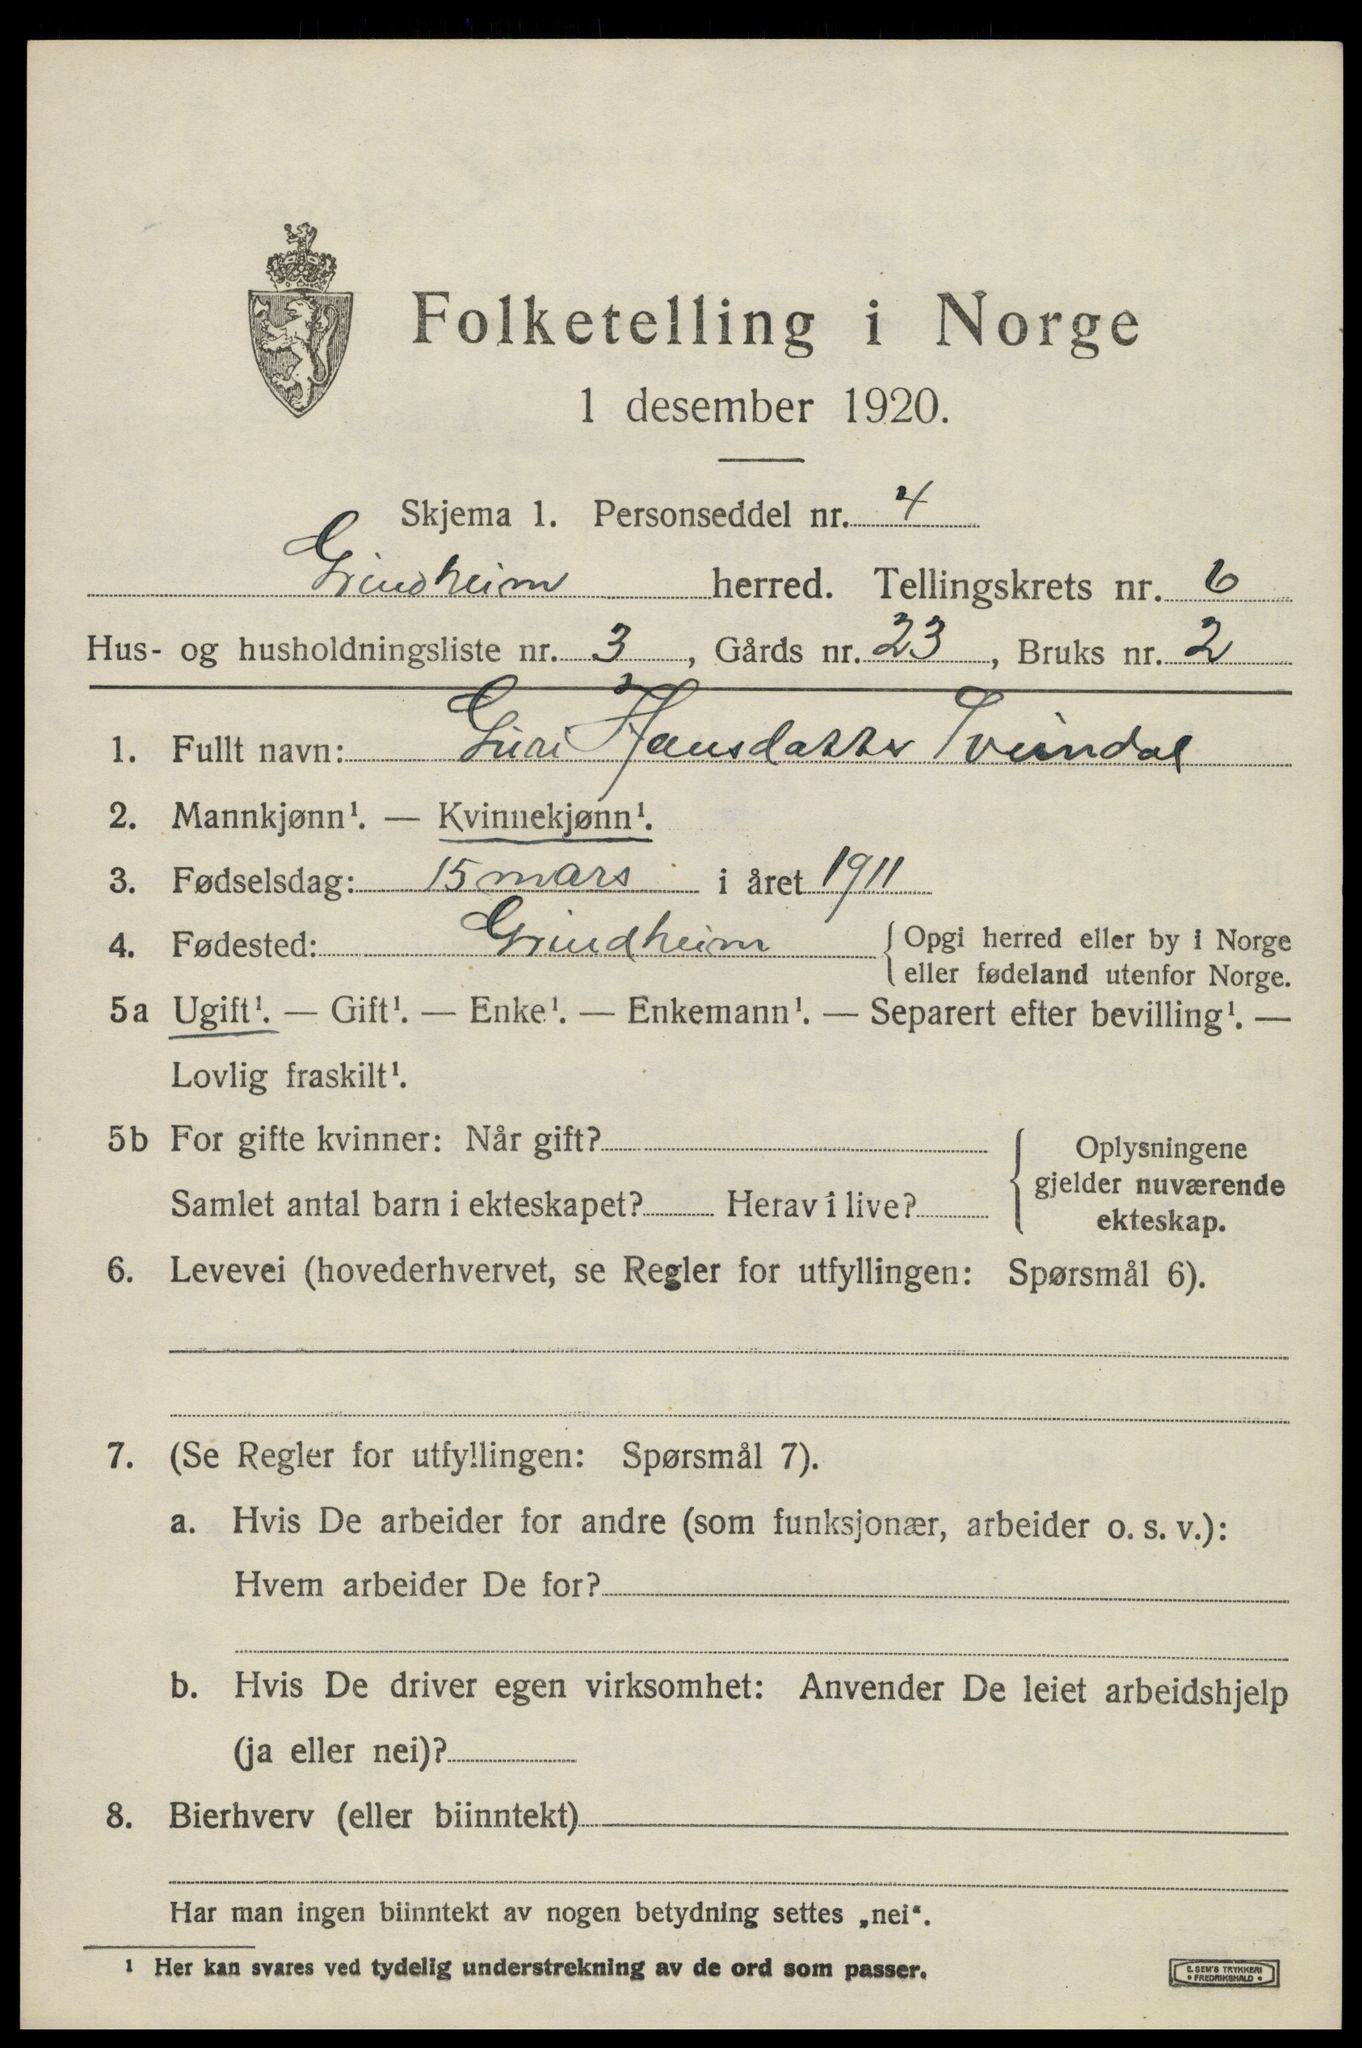 Folketelling i Norge
1 desember 1920.
Skjema 1. Personseddel nr. 4
Grindheim herred. Tellingskrets nr. 6
Hus- og husholdningsliste nr. 3, Gårds nr. 23, Bruks nr. 2
1. Fullt navn: Guri Hansdatter Tveindal
2. Mannkjønn¹. — Kvinnekjønn¹.
3. Fødselsdag: 15 mars i året 1911
4. Fødested: Grindheim { Opgi herred eller by i Norge
eller fødeland utenfor Norge.
5a Ugift¹. — Gift¹. — Enke¹. — Enkemann¹. — Separert efter bevilling¹. —
Lovlig fraskilt¹.
5b For gifte kvinner: Når gift?
Samlet antal barn i ekteskapet? Herav i live?
Oplysningene
gjelder nuværende
ekteskap.
6. Levevei (hovederhvervet, se Regler for utfyllingen: Spørsmål 6).
7. (Se Regler for utfyllingen: Spørsmål 7).
a. Hvis De arbeider for andre (som funksjonær, arbeider o. s. v.):
Hvem arbeider De for?
b. Hvis De driver egen virksomhet: Anvender De leiet arbeidshjelp
(ja eller nei)?
8. Bierhverv (eller biinntekt)
Har man ingen biinntekt av nogen betydning settes „nei“.
¹ Her kan svares ved tydelig understrekning av de ord som passer.
E. SEM'S TRYKKERI
• FREDRIKSHALD •